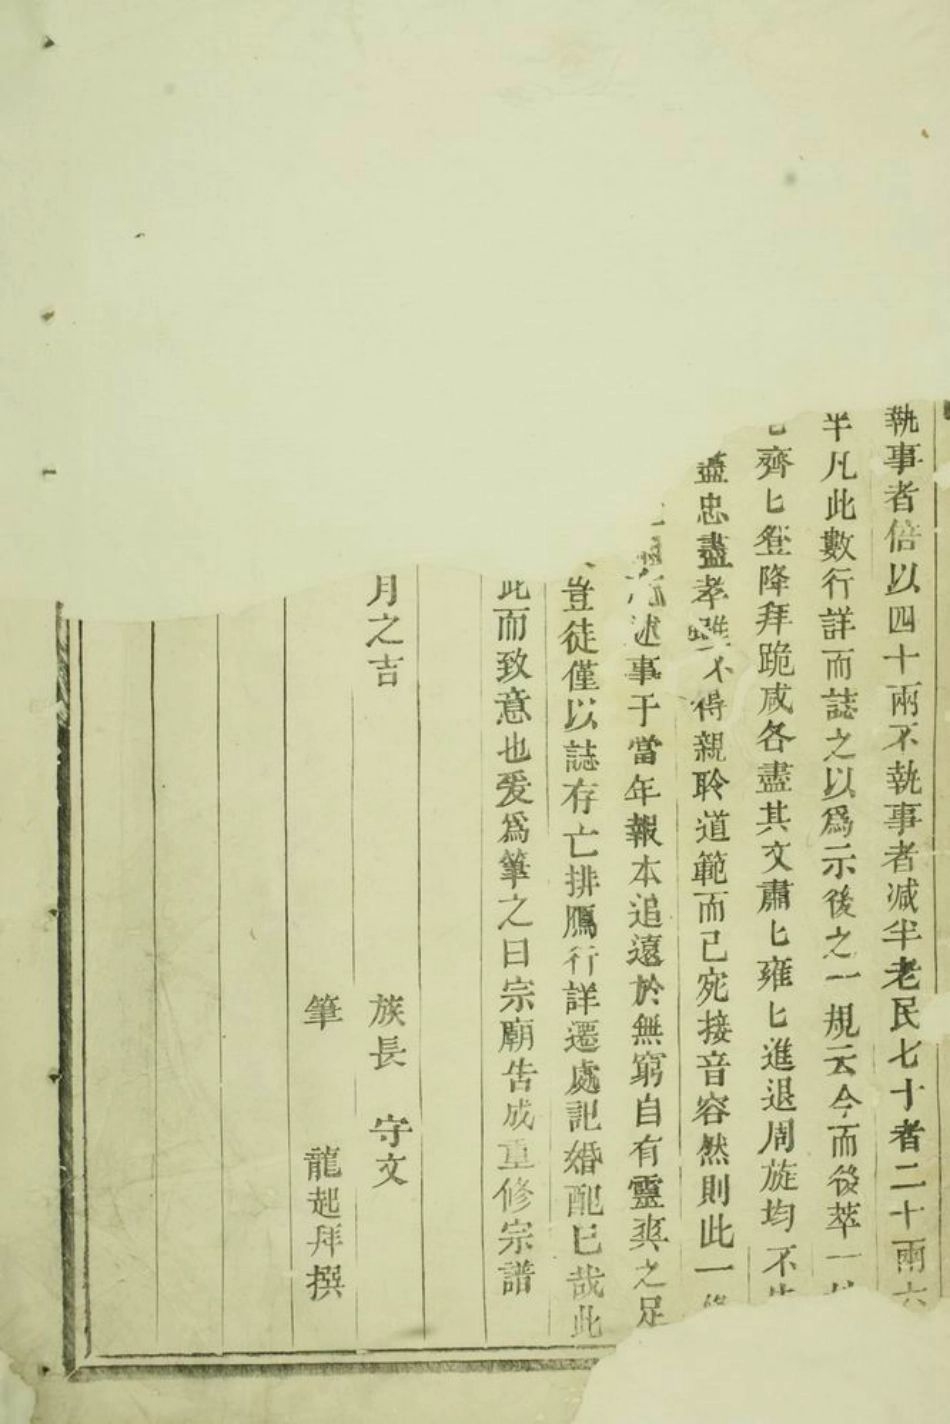 執事者倍以四十兩不執事者减半老民七十者二十兩六
半凡此數行詳而誌之以爲示後之一規云今而後萃一
齊匕登降拜跪咸各盡其文肅匕雍匕進退周旋均不失
盡忠盡孝雖不得親聆道範而已宛接音容然則此一修
述事于當年報本追遠於無窮自有靈爽之足
豈徒僅以誌存亡排鴈行詳遷處記婚配已哉此
此而致意也爰爲筆之曰宗廟告成重修宗譜
月之吉 族長 守文
筆 龍起拜撰